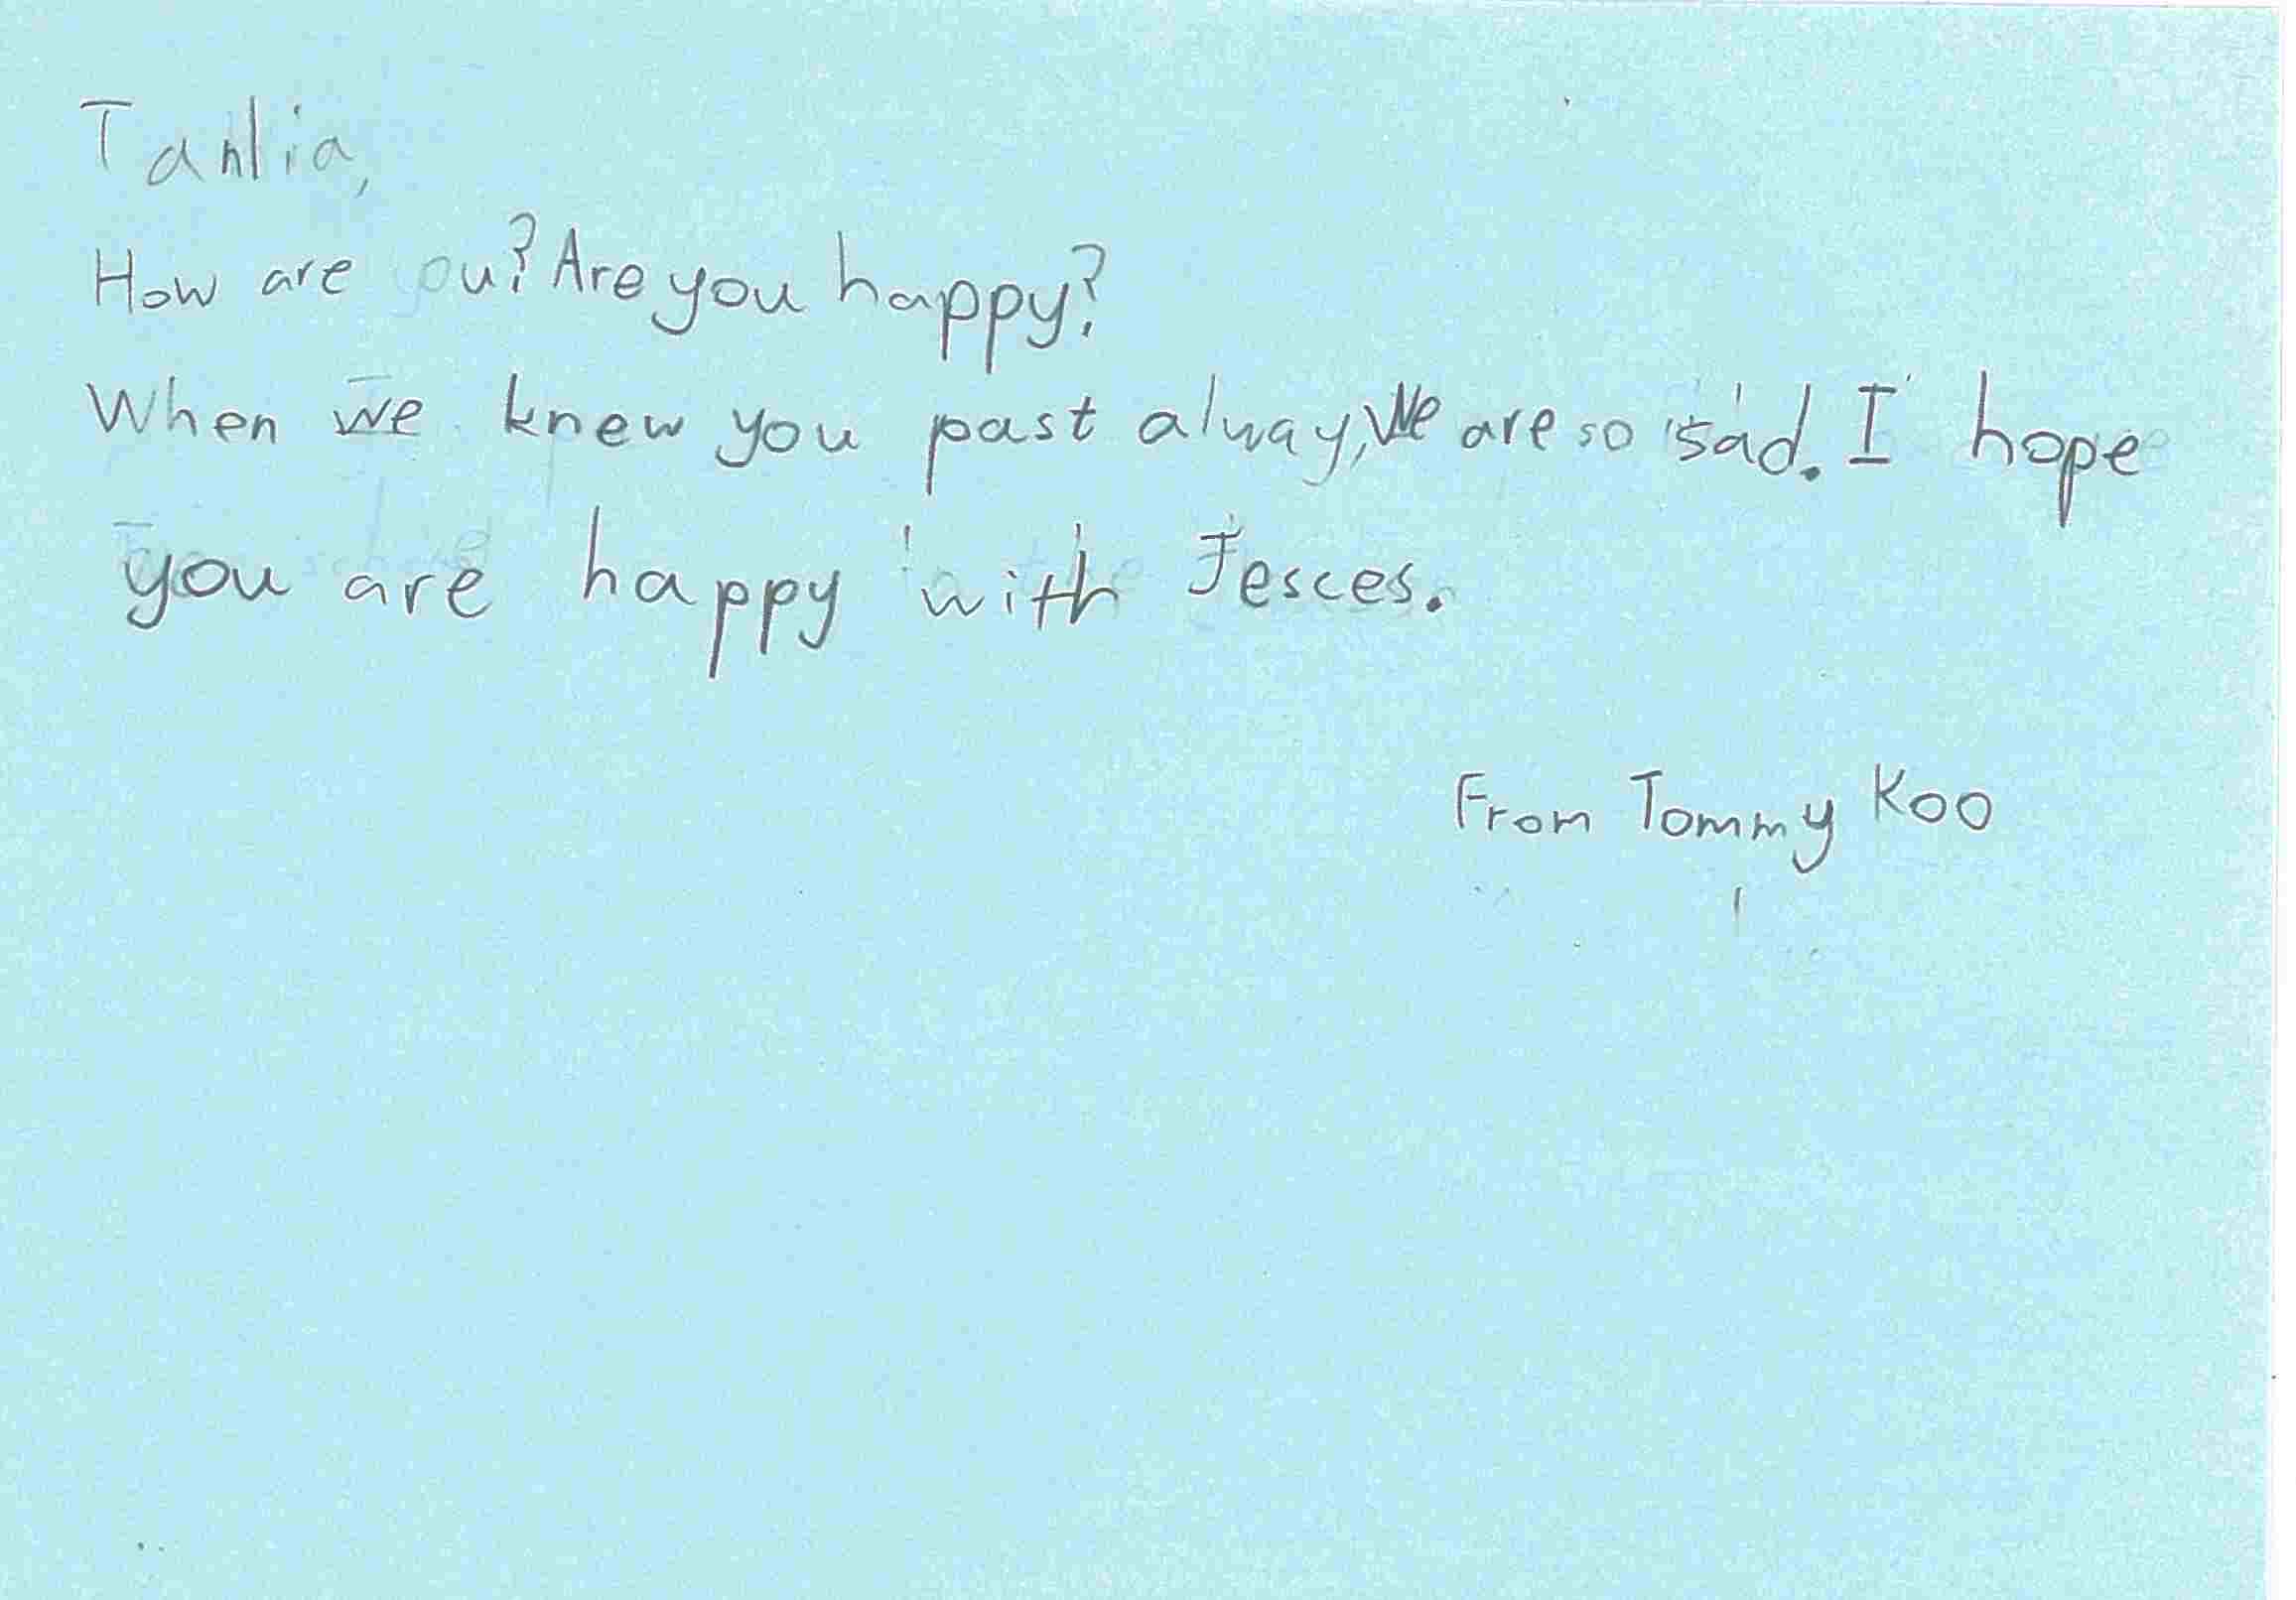 Tanlia,
How are you? Are you happy?
When we knew you past alway, We are so sad. I hope
you are happy with Jesces.
From Tommy Koo